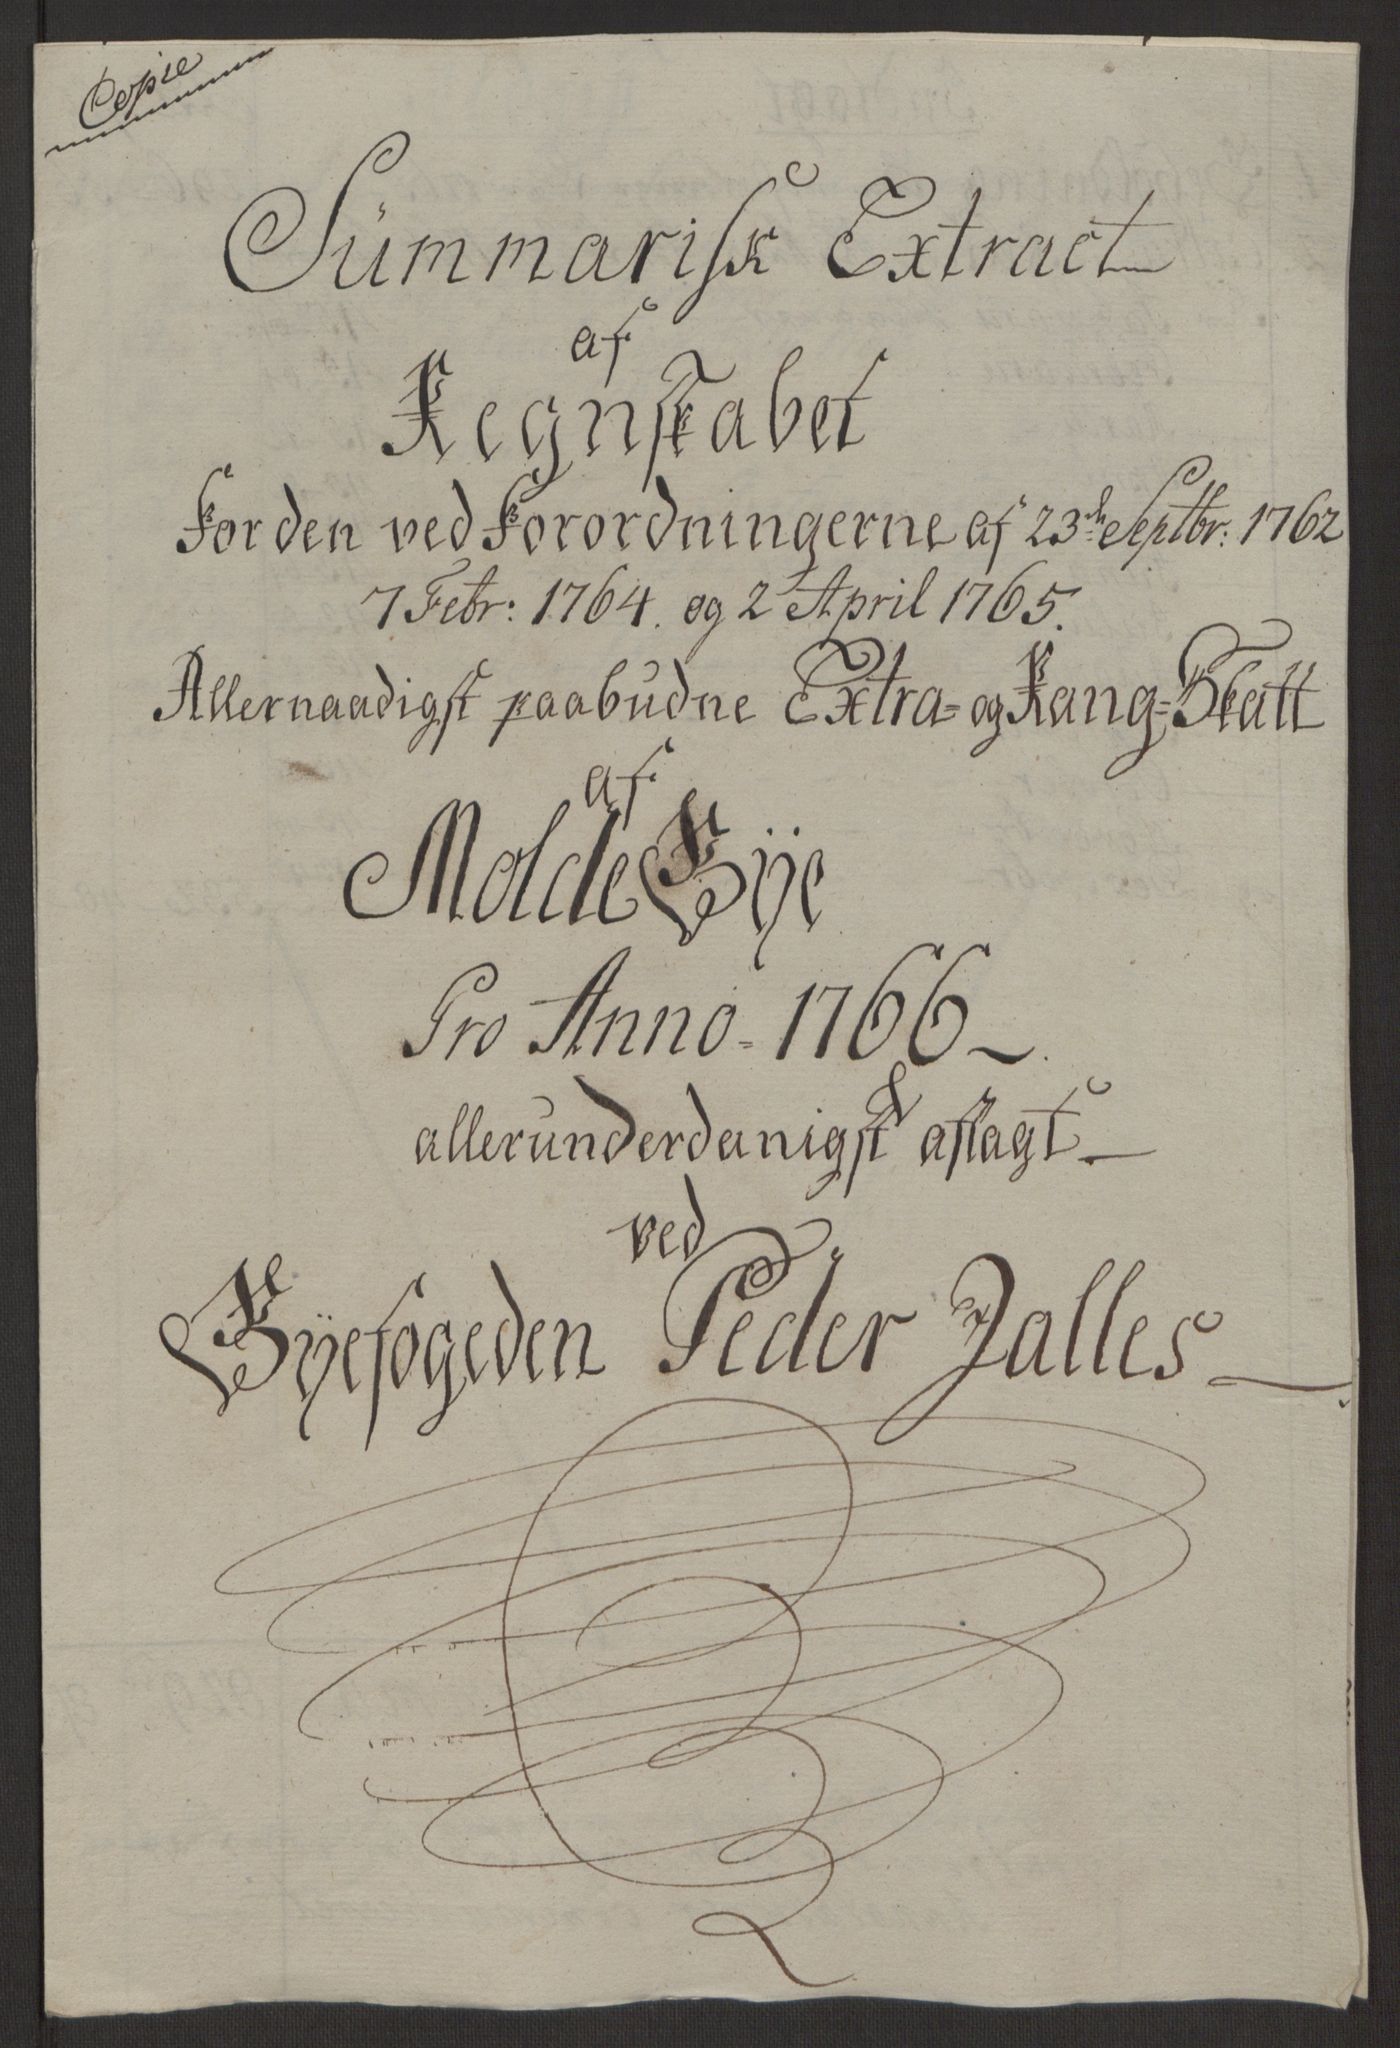 Copie
Sümmarisk Extract
af
Regnskabet
For den ved Forordningerne af 23de Septbr: 1762
7 Febr: 1764. og 2 April 1765.
Allernaadigst paabudne Extra= og Rang=Skatt
af
Molde Bÿe
Pro Anno= 1766
allerunderdanigst aflagt
ved
Bÿefogeden Peder Jalles